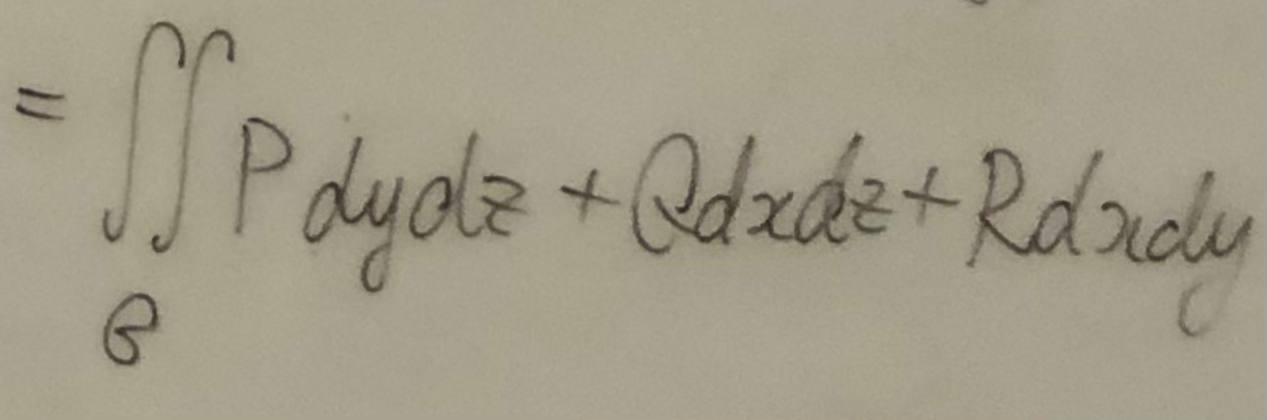 = ∬ P dydz + Qdxdz + Rdxdy
σ